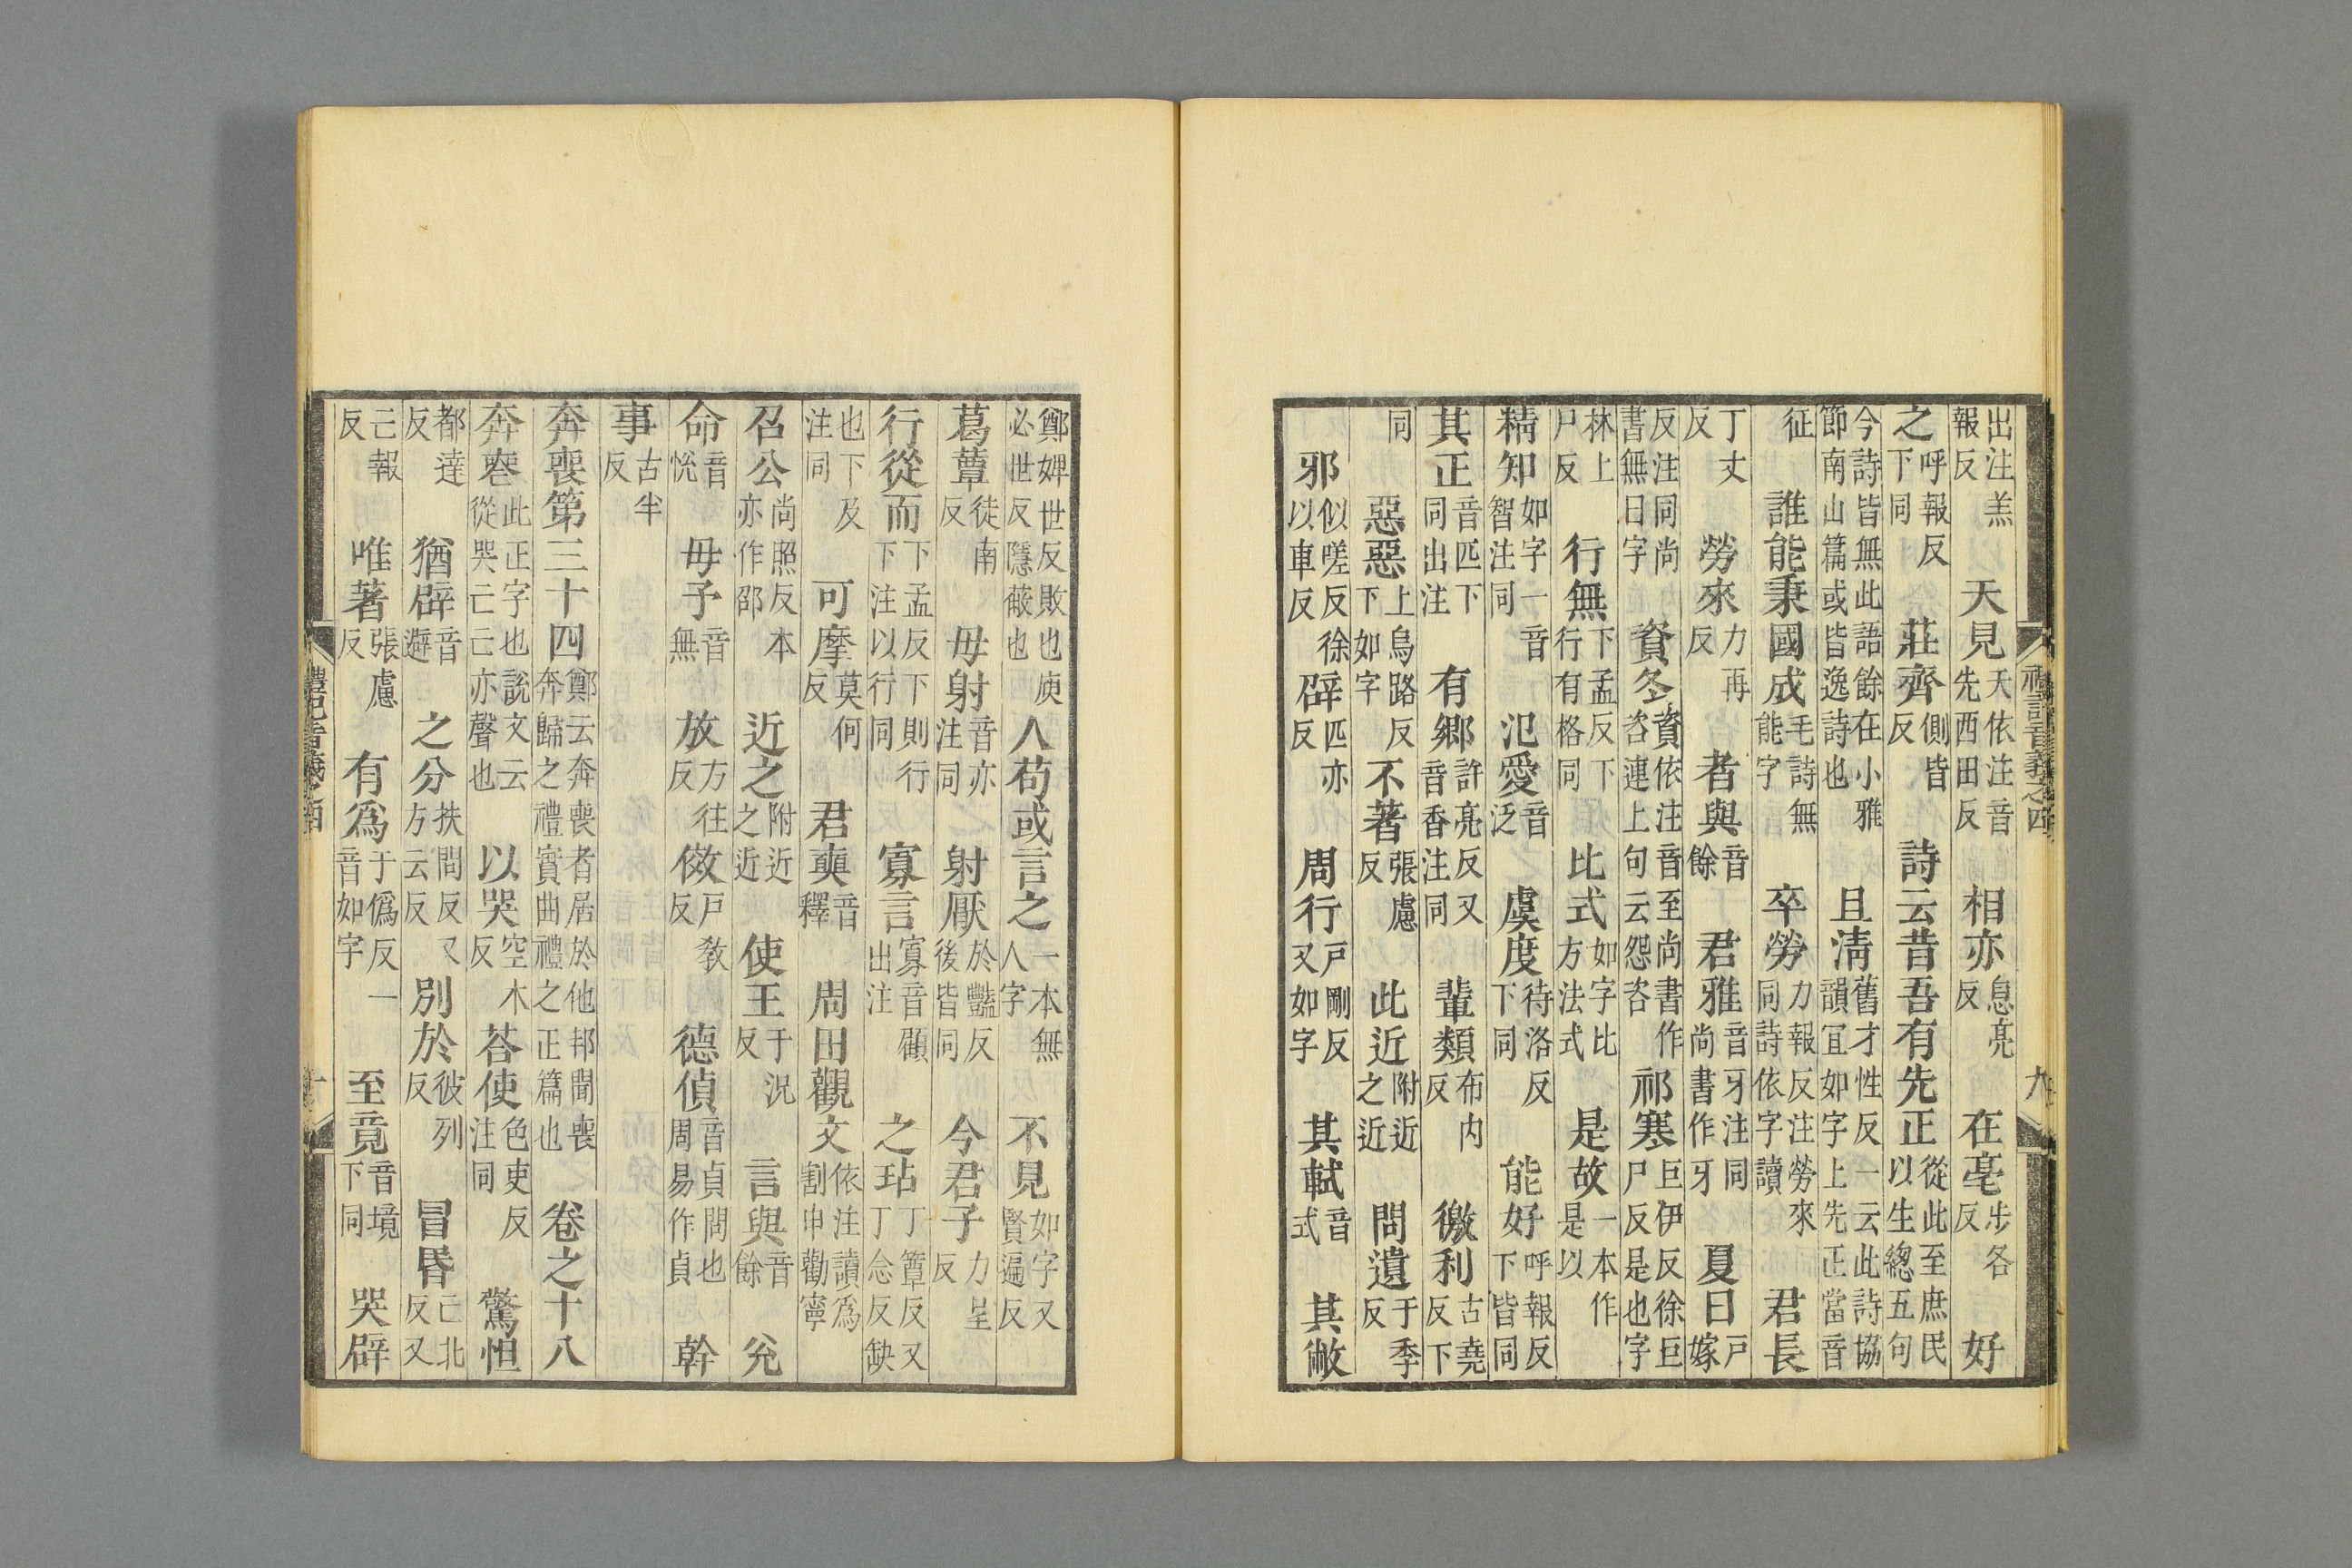 出注羔報反 天見天依注音先西田反 相亦息亮反 在亳步各反 好
之呼報反下同 莊齊側皆反 詩云昔吾有先正從此至庶民以生總五句
今詩皆無此語餘在小雅節南山篇或皆逸詩也 且淸舊才性反一云此詩協韻宜如字上先正當音
征 誰能秉國成毛詩無能字 卒勞力報反注勞來同詩依字讀 君長
丁丈反 勞來力再反 者與音餘 君雅音牙注同尚書作牙 夏日戶嫁
反注同尚書無日字 資冬資依注音至尚書作咨連上句云怨咨 祁寒巨伊反徐巨尸反是也字
林上尸反 行無下孟反下行有格同 比式如字比方法式 是故一本作是以
精知如字一音智注同 氾愛音泛 虞度待洛反下同 能好呼報反下皆同
其正音匹下同出注 有鄉許亮反又音香注同 輩類布內反 徼利古堯反下
同 惡惡上烏路反下如字 不著張慮反 此近附近之近 問遺于季反
邪似嗟反徐以車反 辟匹亦反 周行戶剛反又如字 其軾音式 其敝
鄭婢世反敗也庾必世反隱蔽也 人苟或言之一本無人字 不見如字又賢遍反
葛蕈徒南反 毋射音亦注同 射厭於豔反後皆同 今君子力呈反
行從而下孟反下則行下注以行同 寡言寡音顧出注 之玷丁簟反又丁念反缺
也下及注同 可摩莫何反 君奭音釋 周田觀文依注讀爲割申勸寧
召公尚照反本亦作邵 近之附近之近 使王于況反 言與音餘 兊
命音恱 毋予音無 放方往反 傚戶敎反 德偵音貞問也周易作貞 幹
事古半反
奔喪第三十四鄭云奔喪者居於他邦聞喪奔歸之禮實曲禮之正篇也 卷之十八
奔䘮此正字也說文云從哭亡亡亦聲也 以哭空木反 荅使色吏反注同 驚怛
都達反 猶辟音避 之分扶問反又方云反 別於彼列反 冒昏亡北反又
亡報反 唯著張慮反 有爲于僞反一音如字 至竟音境下同 哭辟
禮記音義之四 九